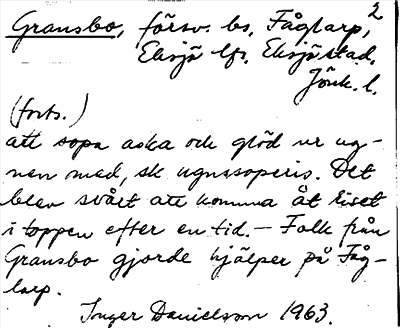 2
Gransbo, försv. bs, Fåglarp,
Eksjö lfs. Eksjö stad,
Jönk. l.
(forts.)
att sopa aska och glöd ur ug-
nen med, sk ugnssoperis. Det
blev svårt att komma åt riset
i toppen efter en tid. – Folk från
Gransbo gjorde hjälper på Fåg-
larp.
Inger Danielsson 1963.